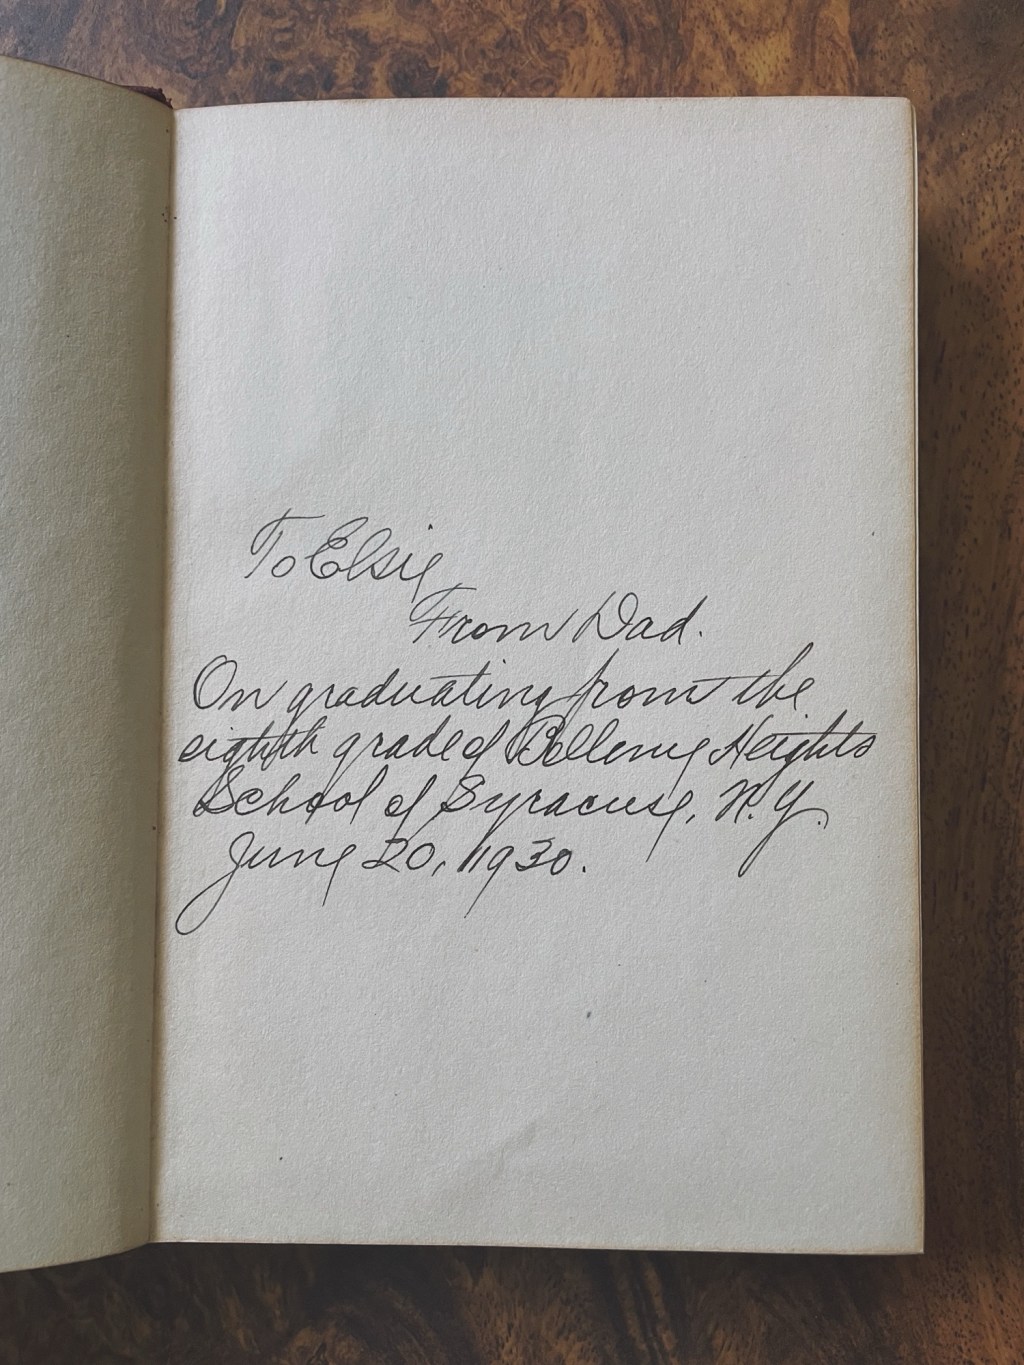 To Elsie
From Dad.
On graduating from the
eighth grade of Bellevue Heights
School of Syracuse, N.Y.
June 20, 1930.